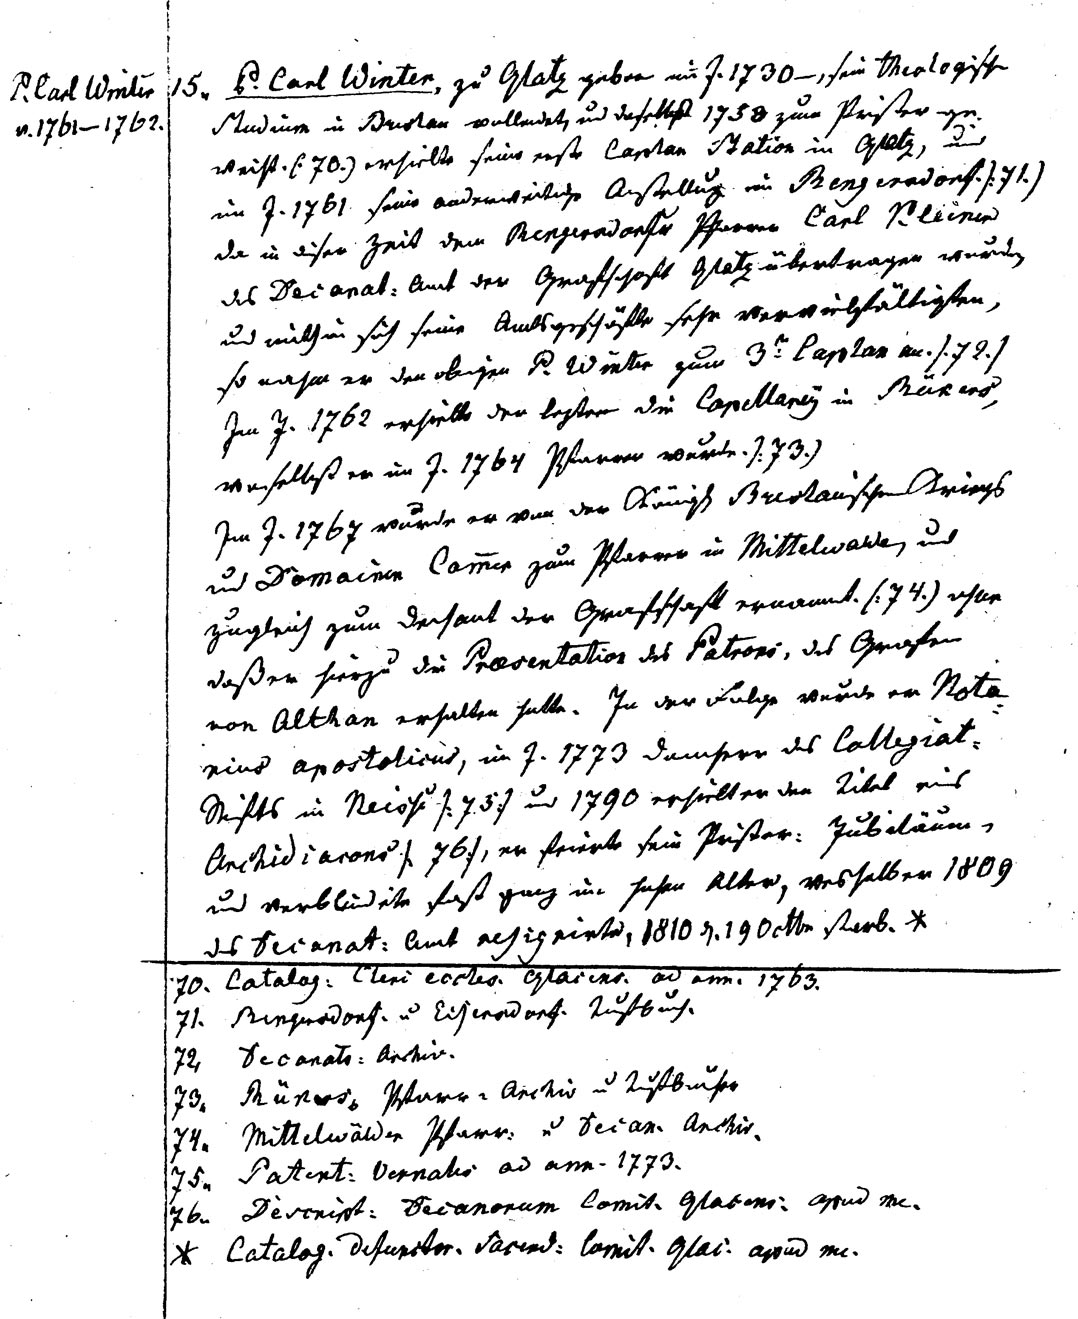 P. Carl Winter
v. 1761–1762.
15. P. Carl Winter, zu Glatz geboren im J. 1730 –, sein theologisch
Studium in Breslau vollendet, und daselbst 1758 zum Prister ge-
weiht. (:70.) erhielte seine erste Caplan Station in Glatz, und
im J. 1761 seine anderweitige Anstellung in Rengersdorf. (:71.)
da in diser Zeit dem Rengersdorfer Pfarrer Carl Kleiner
das Decanat: Amt der Grafschaft Glatz übertragen wurde,
und mithin sich seine Amtsgeschäfte sehr vervielfältigten,
so nahm er den obigen P. Winter zum 3n Caplan an. (:72.)
Im J. 1762 erhielte der leztere die Capellaney in Rükers,
woselbst er im J. 1764 Pfarrer wurde. (:73.)
Im J. 1767 wurde er von der Königl Breslauischen Kriegs
und Domainen Cammer zum Pfarrer in Mittelwalde, und
zugleich zum Dechant der Grafschaft ernannt. (:74.) ohne
daß er hierzu die Præsentation des Patrons, des Grafen
von Althan erhalten hatte. In der Folge wurde er Nota-
rius apostolicus, im J. 1773 Domherr des Collegiat-
Stifts in Neisse (:75:) und 1790 erhielt er den Titel eines
Archidiacons (: 76:), er feierte sein Prister: Jubiläum,
und verblindete fast ganz im hohen Alter, weshalb er 1809
das Decanat: Amt resignirte, 1810 d. 19 Octbr starb. *
70. Catalog: Cleri eccles. Glacens. ad ann. 1763.
71. Rengersdorf. u Eisersdorf. Taufbuch.
72. Decanats: Archiv.
73. Rükers, Pfarr- Archiv u Taufbücher
74. Mittelwälder Pfarr: u Decan. Archiv.
75. Patent: Vernalis ad ann. 1773.
76. Descript: Decanorum Comit. Glacens: apud me.
* Catalog. Defunctor. Sacerd: Comit. Glac. apud me.